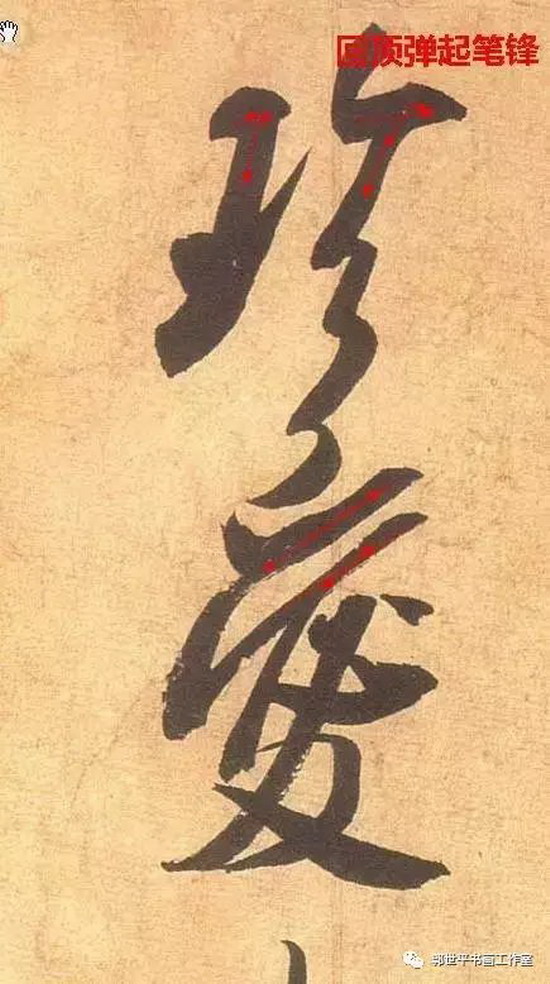 回顶弹起笔锋
珍愛
鄂世平书画工作室